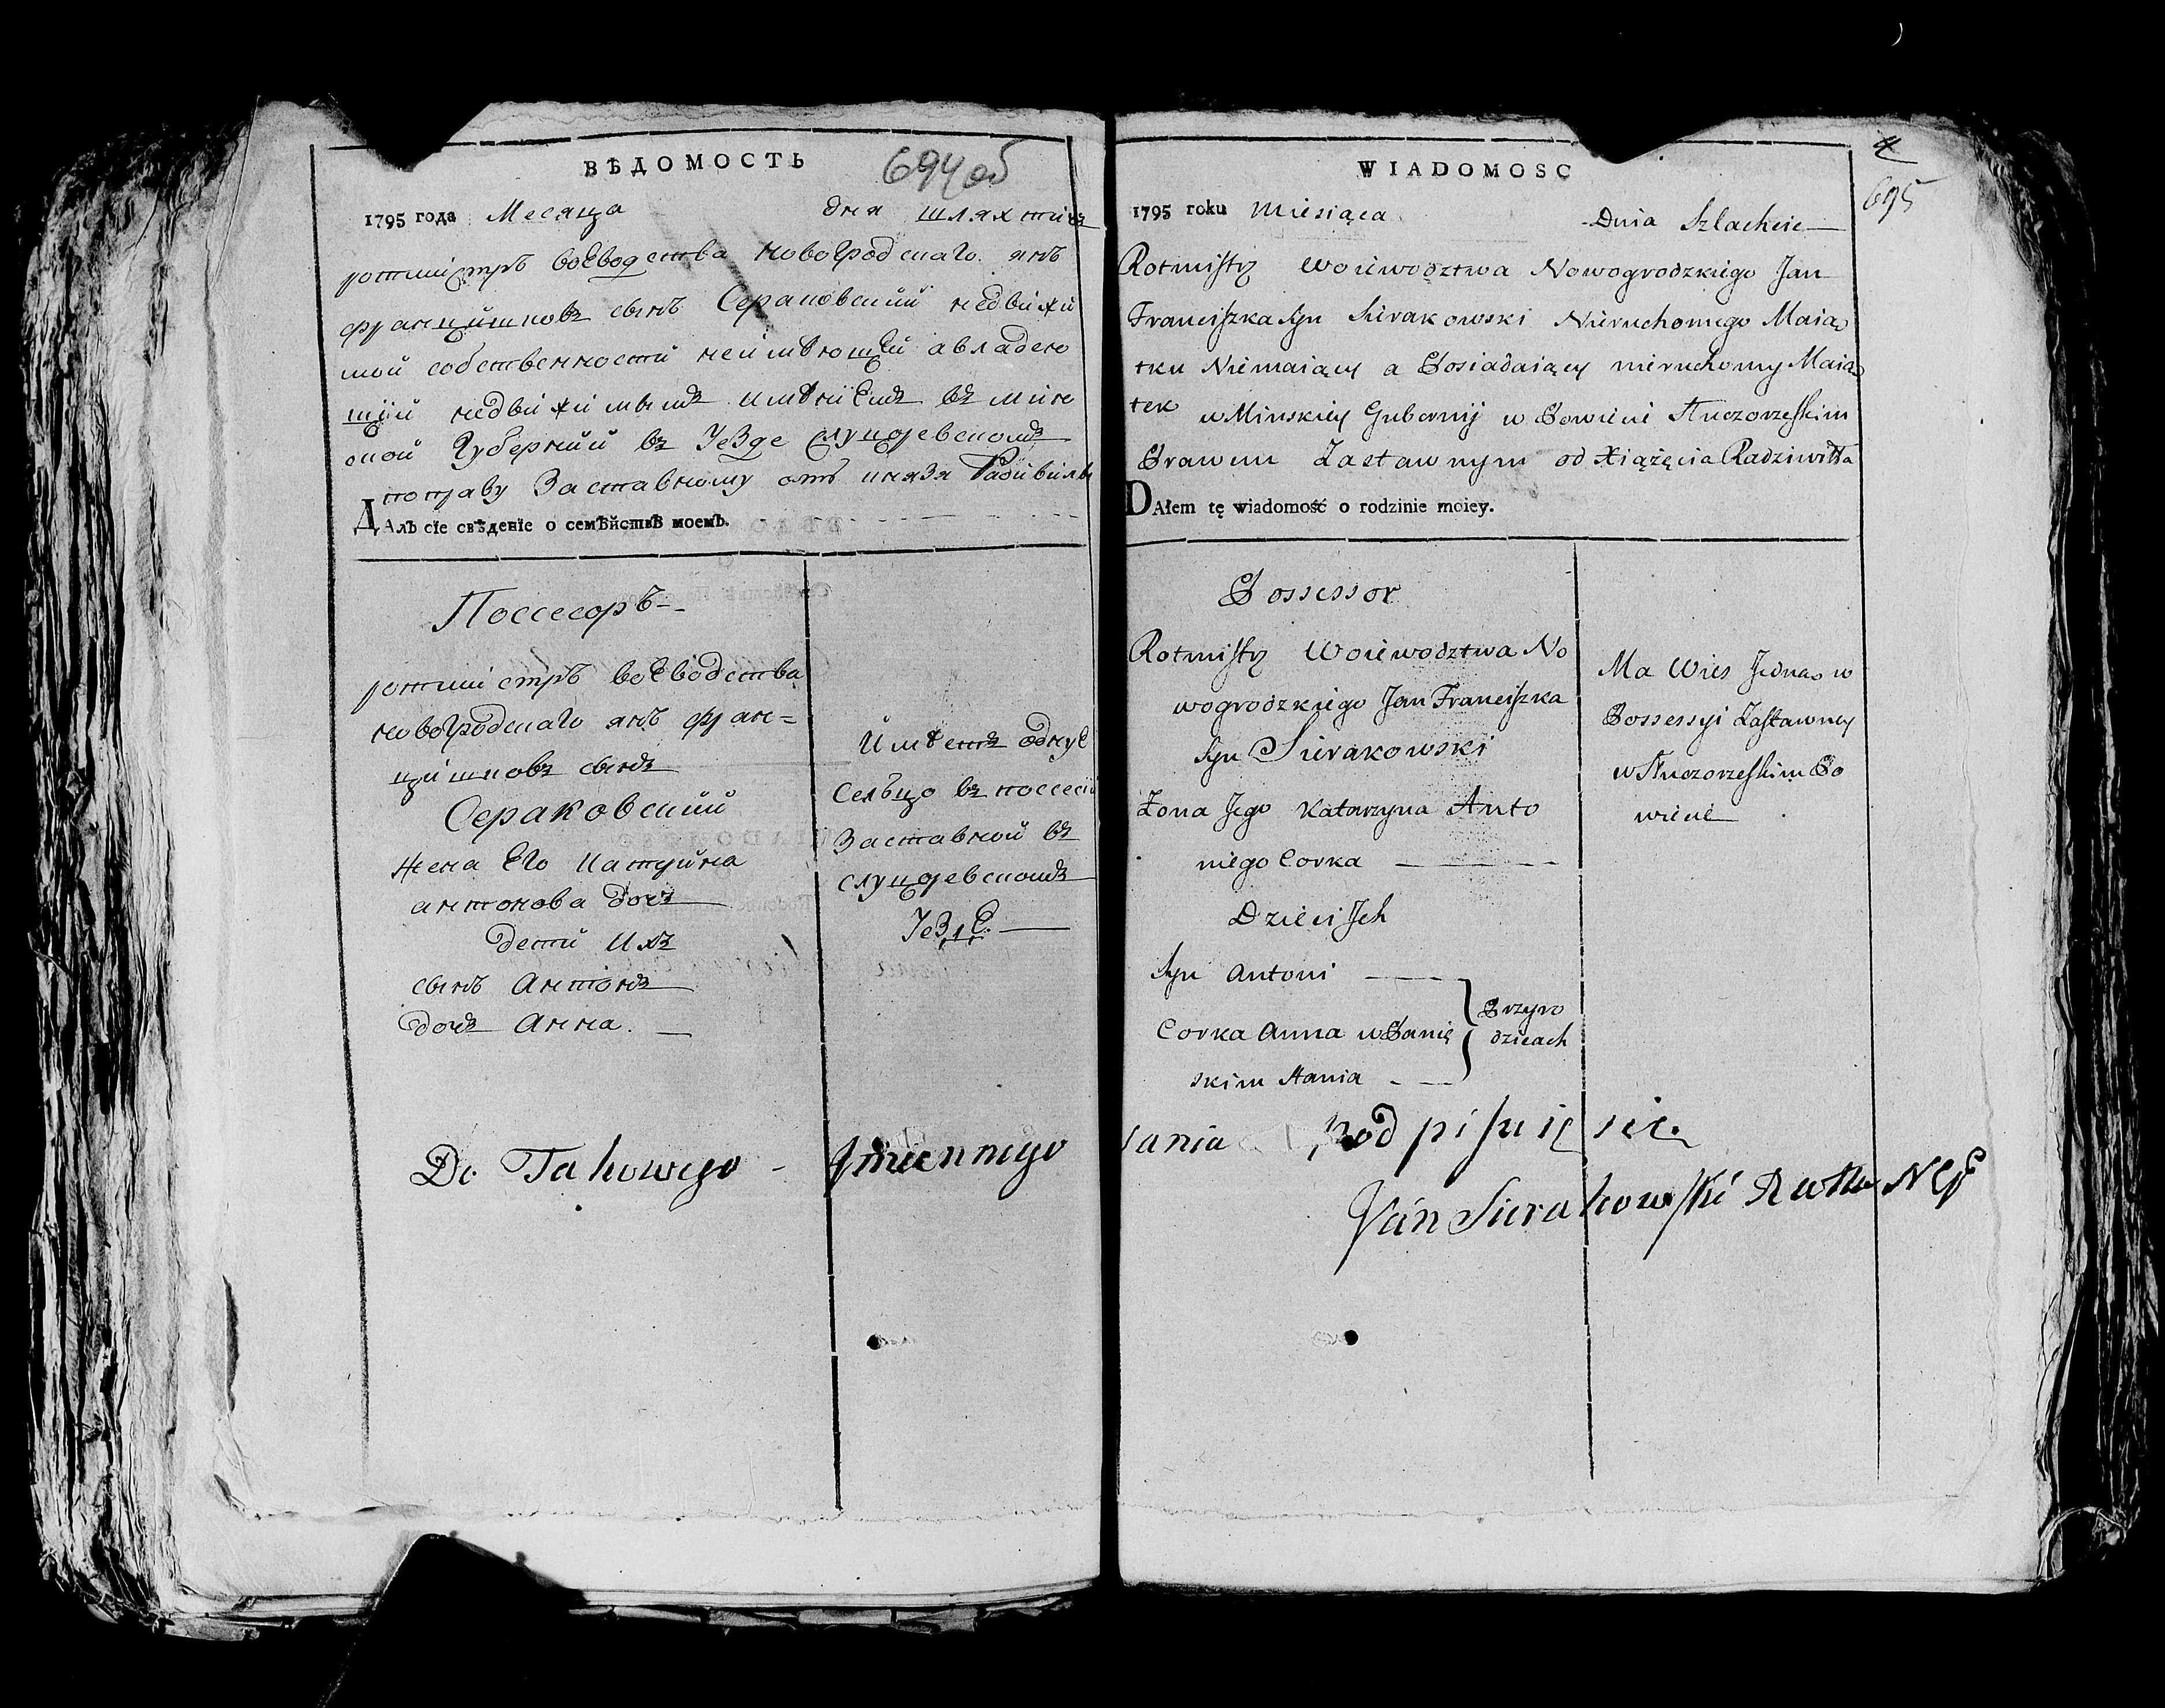 ВѢДОМОСТЬ
694 об
1795 года Месяца дня шляхтичъ
ротмистръ воеводства новогродскаго янъ
францишковъ сынъ Сераковский недвижи
мой собственности неимѣющей авладею
щий недвижимымъ имѣниемъ въ минс
кой Губернии въ Уезде слуцоревскомъ
поправу Заставному отъ князя Радивила
ДАлЪ сіе свѣденіе о семѣйствѣ моемЪ.
Поссесоръ
ротмистръ воеводства
новогродскаго янъ фран=
цишковъ сынъ
Сераковский
жена Его Катерина
антонова дочъ
дети Ихъ
сынъ Антонъ
дочъ Анна.
Имѣетъ одну
Сельцо въ посесіи
Заставной въ
слуцоревскомъ
Уезде
Do Takowego
WIADOMOSC
4
695
1795 roku Miesiąca Dnia Szlachcic
Rotmistrz Woiewodztwa Nowogrodzkiego Jan
Franciszka Syn Sierakowski Nieruchomego Maią
tku Niemaiący a Posiadaiący nieruchomy Maią
tek w Minskiey Gubernij w Powiecie Słuczorzeskim
Prawem Zastawnym od Xiążęcia Radziwiłła
DAłem tę wiadomość o rodzinie moiey.
Possessor
Rotmistrz Woiewodztwa No
wogrodzkiego Jan Franciszka
Syn Sierakowski
Zona Jego Katarzyna Anto
niego Corka
Dzieci Jch
Syn Antoni
Corka Anna w Panię
skim Stania
Przyro
dzicach
Ma Wies Jedną w
Possessyi Zastawney
w Słuczorzeskim Po
wiecie
podpisuię się.
Jan Sierakowski